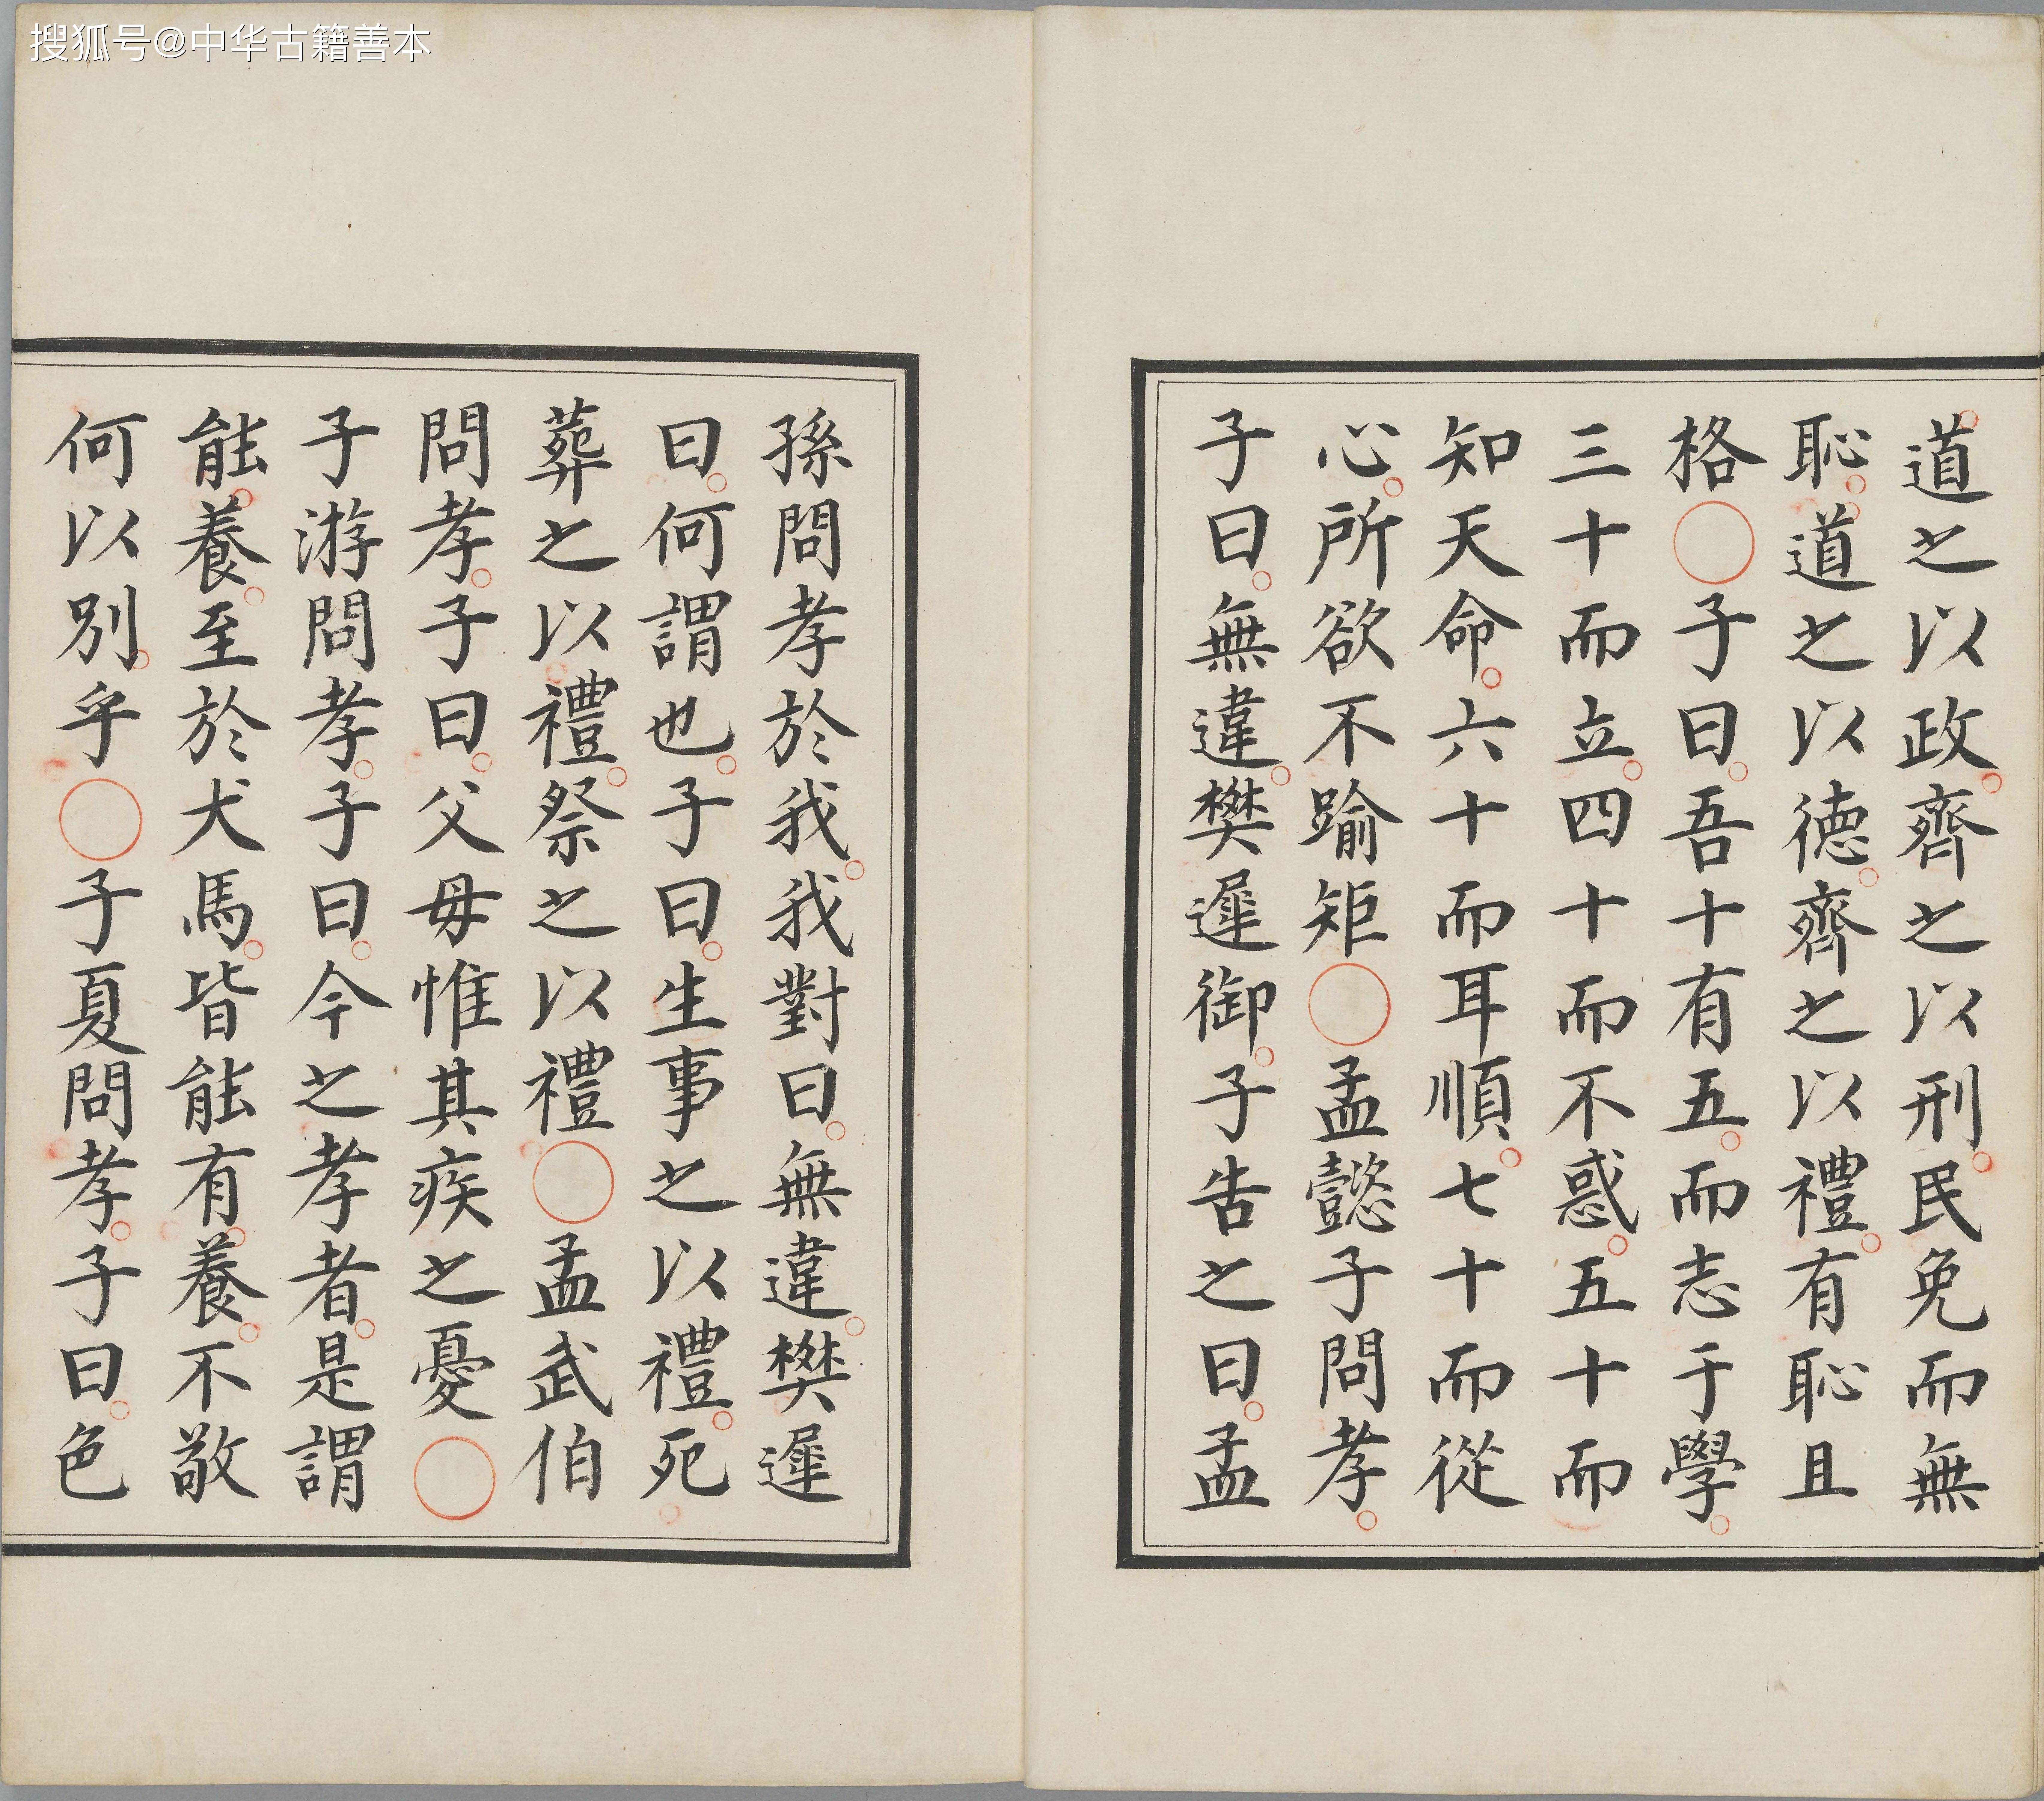 搜狐号@中华古籍善本
道之以政齊之以刑民免而無
恥道之以德齊之以禮有恥且
格○子曰吾十有五而志于學
三十而立四十而不惑五十而
知天命六十而耳順七十而從
心所欲不踰矩○孟懿子問孝
子曰無違樊遲御子告之曰孟
孫問孝於我我對曰無違樊遲
曰何謂也子曰生事之以禮死
葬之以禮祭之以禮○孟武伯
問孝子曰父母惟其疾之憂○
子游問孝子曰今之孝者是謂
能養至於犬馬皆能有養不敬
何以別乎○子夏問孝子曰色